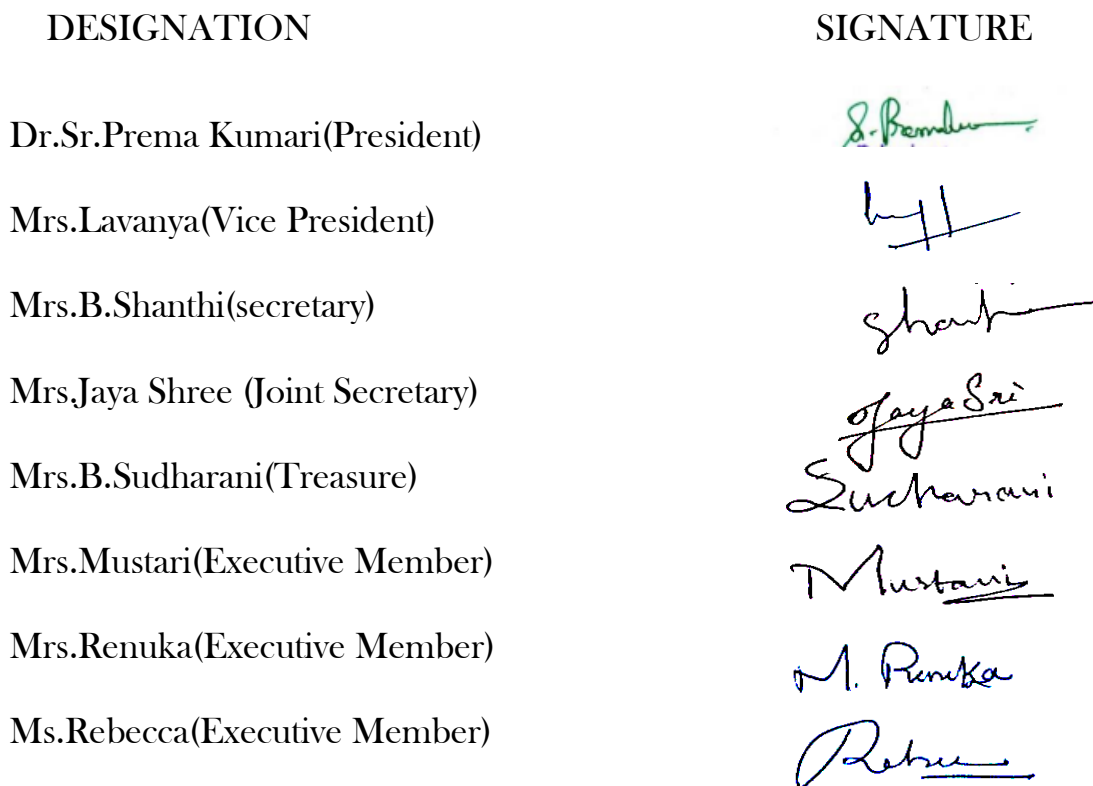 DESIGNATION SIGNATURE
Dr.Sr.Prema Kumari(President) S.
Mrs.Lavanya(Vice President)
Mrs.B.Shanthi(secretary) Shanti
Mrs.Jaya Shree (Joint Secretary) JayaSri
Mrs.B.Sudharani(Treasure) Sudharani
Mrs.Mustari(Executive Member) Mustari
Mrs.Renuka(Executive Member) M. Renuka
Ms.Rebecca(Executive Member)